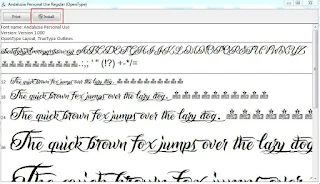 Andalusia Personal Use Regular (OpenType)
Print Install
Font name: Andalusia Personal Use
Version: Version 1.000
OpenType Layout, TrueType Outlines
abcdefghijklmnopqrstuvwxyz ABCDEFGHIJKLMNOPQRSTUVWXYZ
.:,; ' " (!?) +-*/=
12 The quick brown fox jumps over the lazy dog.
18 The quick brown fox jumps over the lazy dog.
24 The quick brown fox jumps over the lazy dog.
The quick brown fox jumps over the lazy dog
The quick brown fox jumps over the